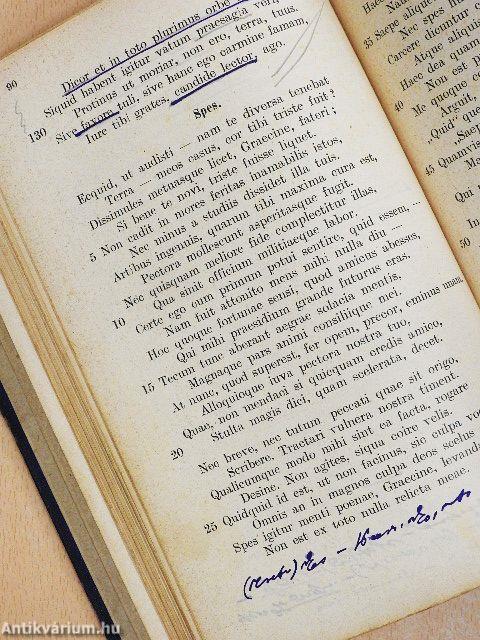 90
Dicor et in toto plurimus orbe
Siquid habent igitur vatum praesagia veri,
Protinus ut moriar, non ero, terra, tuus.
130 Sive favore tuli, sive hanc ego carmine famam,
Iure tibi grates, candide lector, ago.
Spes.
Ecquid, ut audisti — nam te diversa tenebat
Terra — meos casus, cor tibi triste fuit?
Dissimules metuasque licet, Graecine, fateri;
Si bene te novi, triste fuisse liquet.
5 Non cadit in mores feritas inamabilis istos,
Nec minus a studiis dissidet illa tuis.
Artibus ingenuis, quarum tibi maxima cura est,
Pectora mollescunt asperitasque fugit.
Nec quisquam meliore fide complectitur illas,
10 Qua sinit officium militiaeque labor.
Certe ego cum primum potui sentire, quid essem, —
Nam fuit attonito mens mihi nulla diu —
Hoc quoque fortunae sensi, quod amicus abesses,
Qui mihi praesidium grande futurus eras.
15 Tecum tunc aberant aegrae solacia mentis,
Magnaque pars animi consiliique mei.
At nunc, quod superest, fer opem, precor, eminus unam,
Alloquioque iuva pectora nostra tuo,
Quae, non mendaci si quicquam credis amico,
20 Stulta magis dici, quam scelerata, decet.
Nec breve, nec tutum peccati quae sit origo,
Scribere. Tractari vulnera nostra timent.
Qualicumque modo mihi sint ea facta, rogare
Desine. Non agites, siqua coire velis.
25 Quidquid id est, ut non facinus, sic culpa
Omnis an in magnos culpa deos scelus
Spes igitur menti poenae, Graecine, levandae
Non est ex toto nulla relicta meae.
Haec
35 Saepe
Nec spes
Carcere dicuntur
Atque
Haec dea quamvis
Non est
40 Me quoque
Arguit,
"Quid"
"Saepe
45 Quamvis
Qui
50
Antikvárium.hu